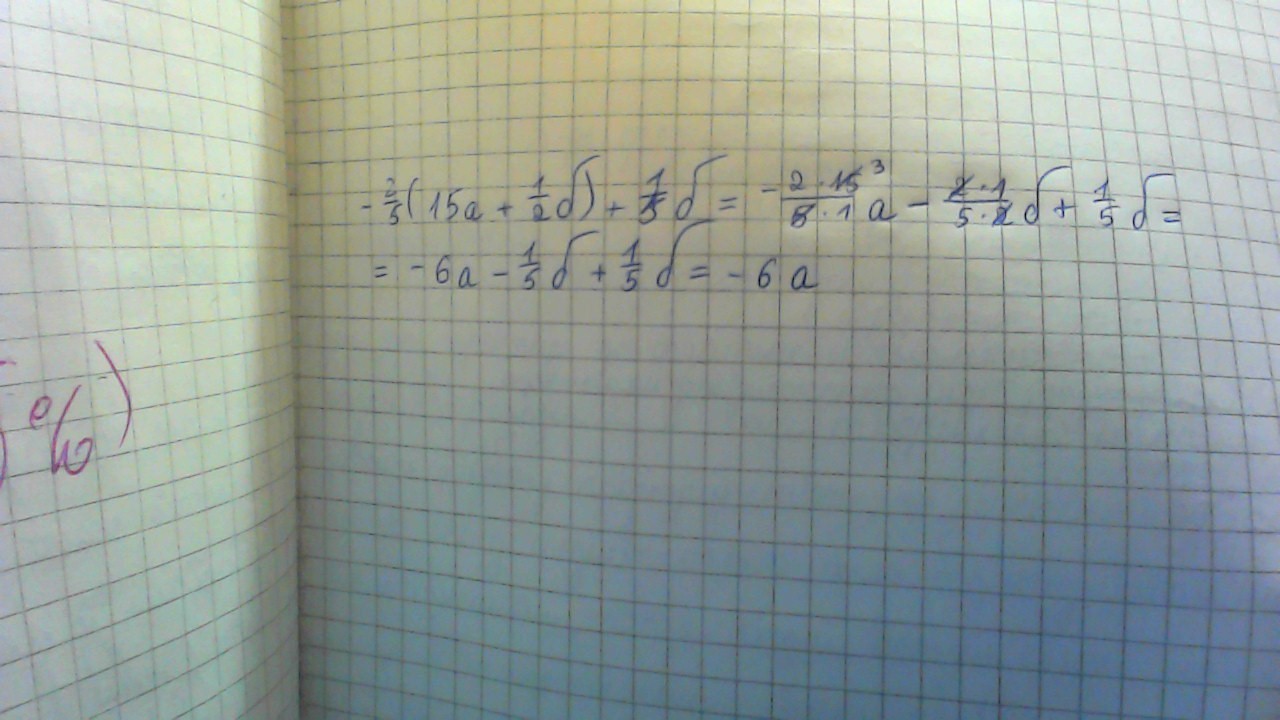 - 2/5 (15a + 1/2 б) + 1/5 б = - 2·15³/5·1 a - 2·1/5·2 б + 1/5 б =
= - 6a - 1/5 б + 1/5 б = - 6 a